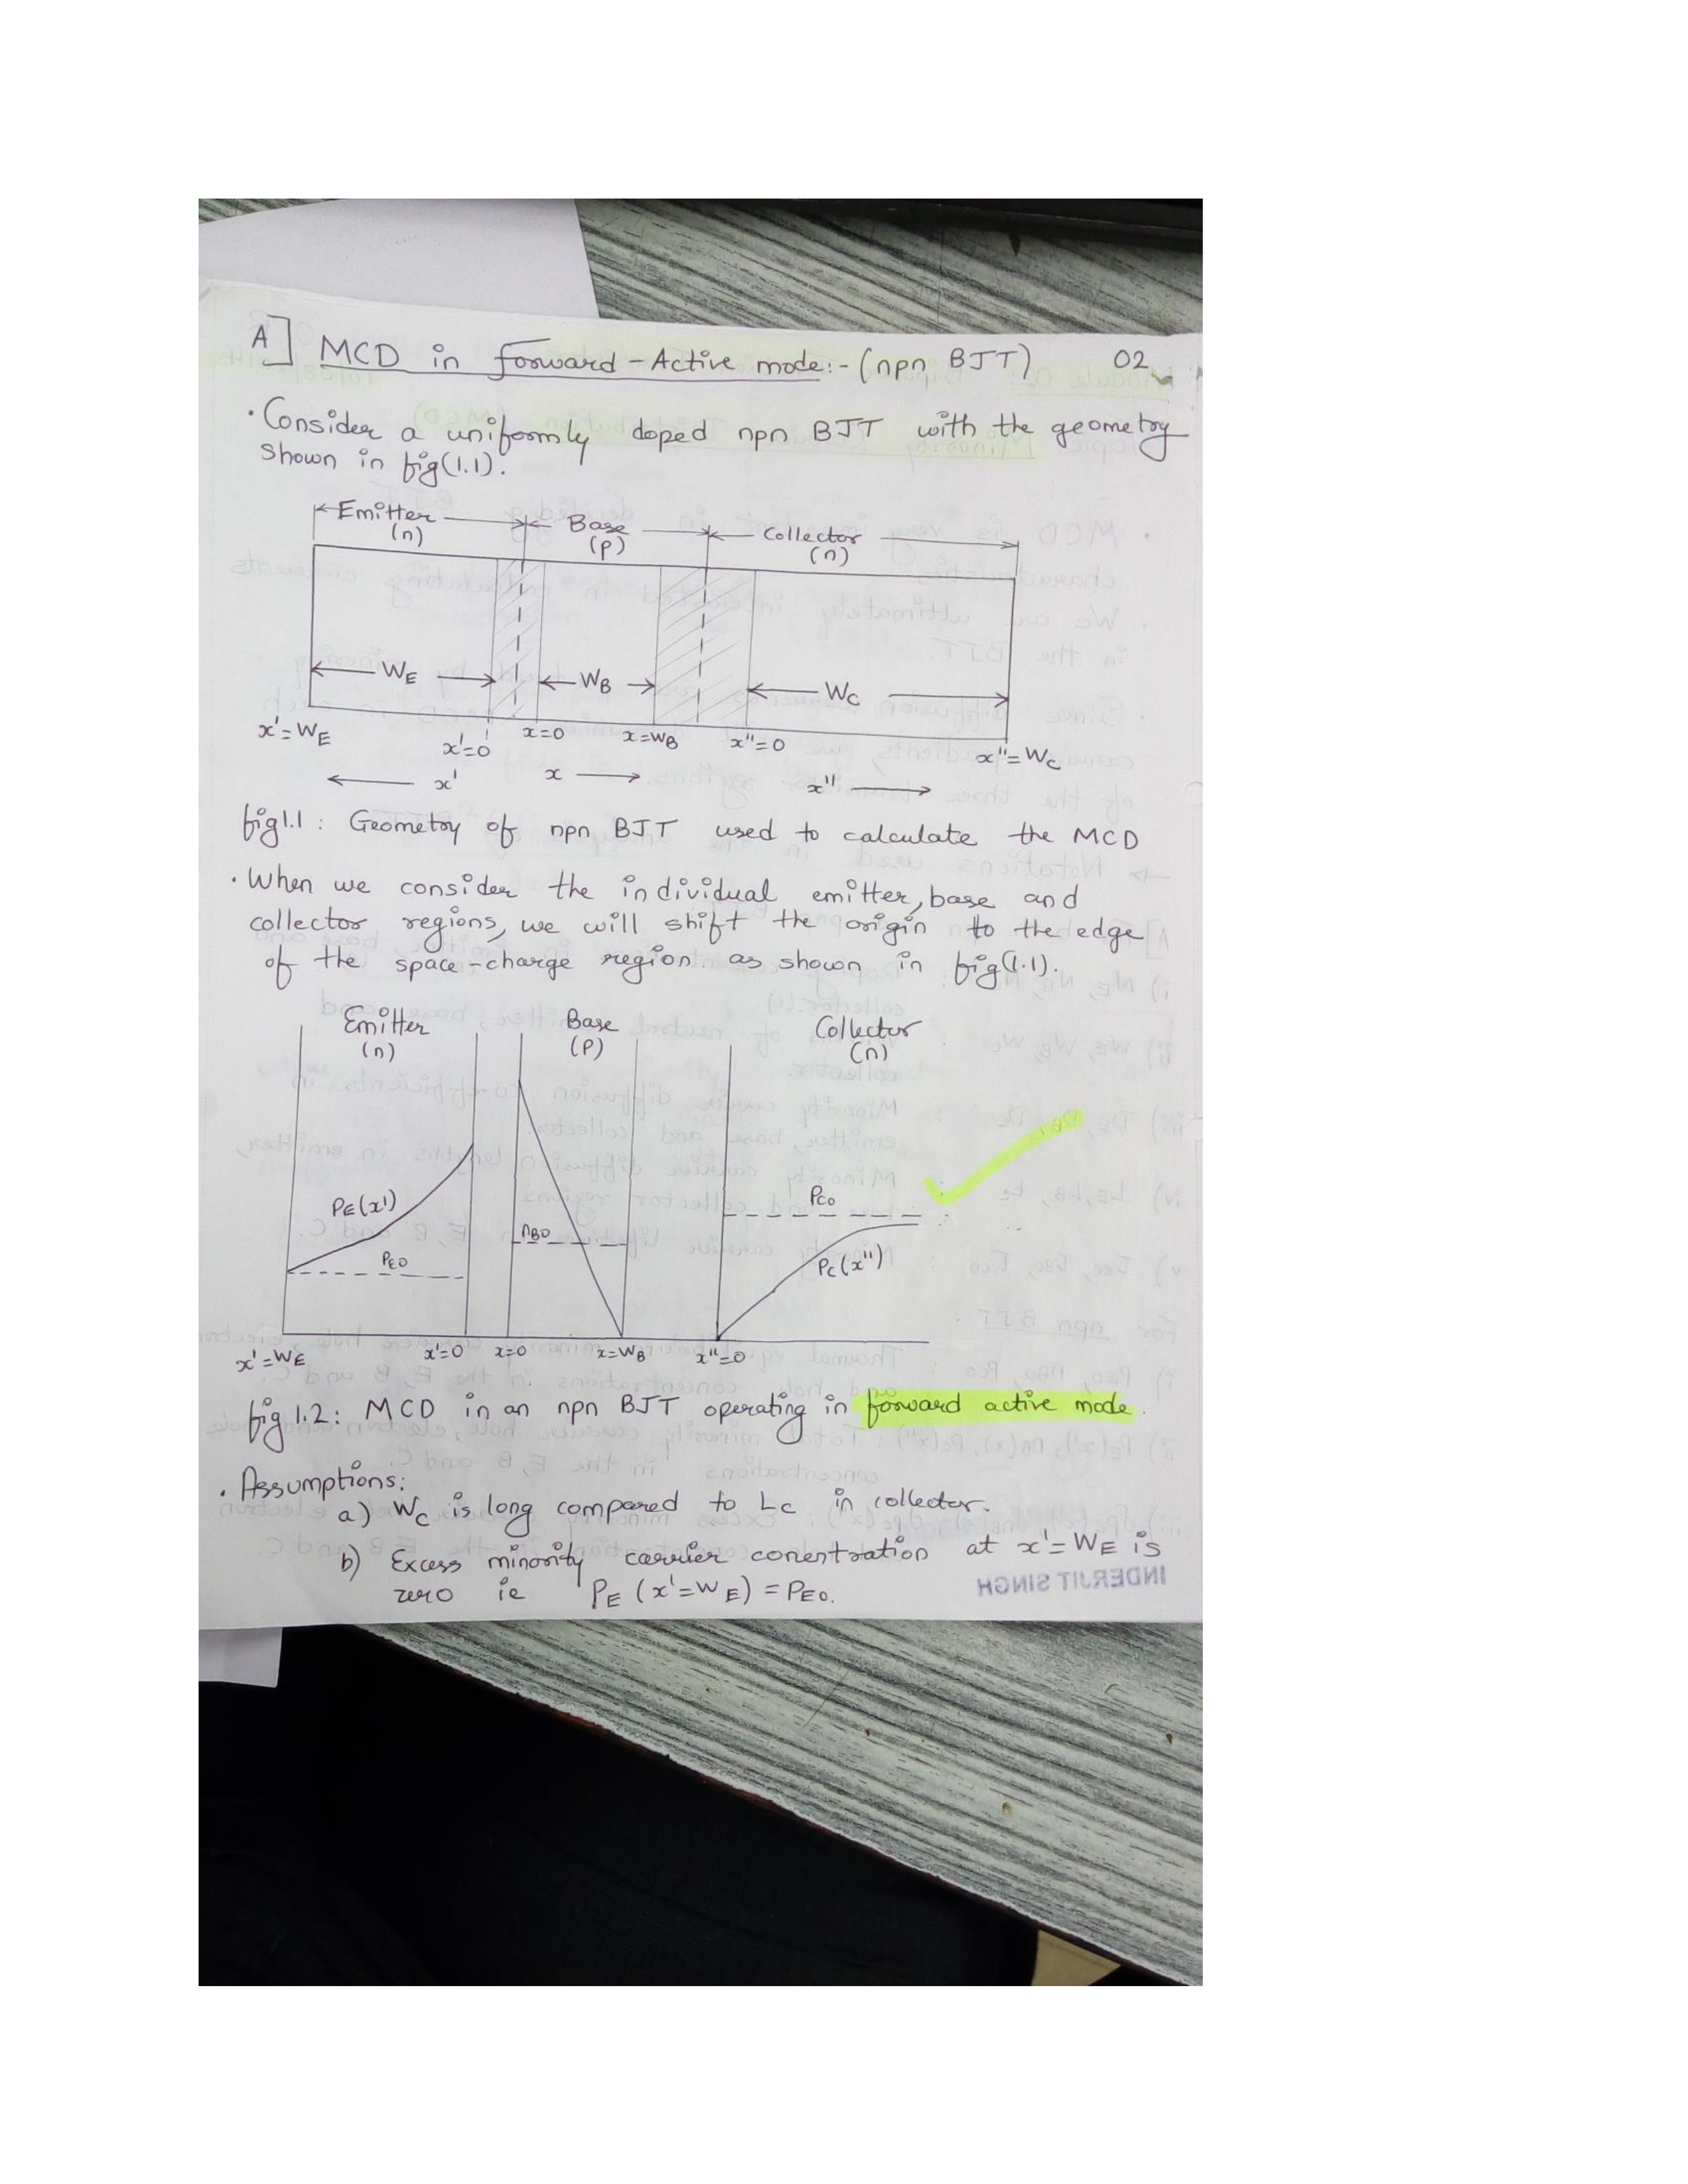 A] MCD in forward-Active mode:- (npn BJT) 02
· Consider a uniformly doped npn BJT with the geometry
shown in fig(1.1).
Emitter
(n)
Base
(p)
Collector
(n)
WE
WB
WC
x'=WE
x'=0
x=0
x=WB
x"=0
x"=WC
x'
x
x"
fig1.1: Geometry of npn BJT used to calculate the MCD
· When we consider the individual emitter, base and
collector regions, we will shift the origin to the edge
of the space-charge region as shown in fig(1.1).
Emitter
(n)
Base
(P)
Collector
(n)
PE(x')
PEO
nBO
PCO
PC(x")
x'=WE
x'=0
x=0
x=WB
x"=0
fig 1.2: MCD in an npn BJT operating in forward active mode.
· Assumptions:
a) WC is long compared to LC in collector.
b) Excess minority carrier conentration at x'=WE is
zero ie PE (x'=WE) = PEO.
INDERJIT SINGH